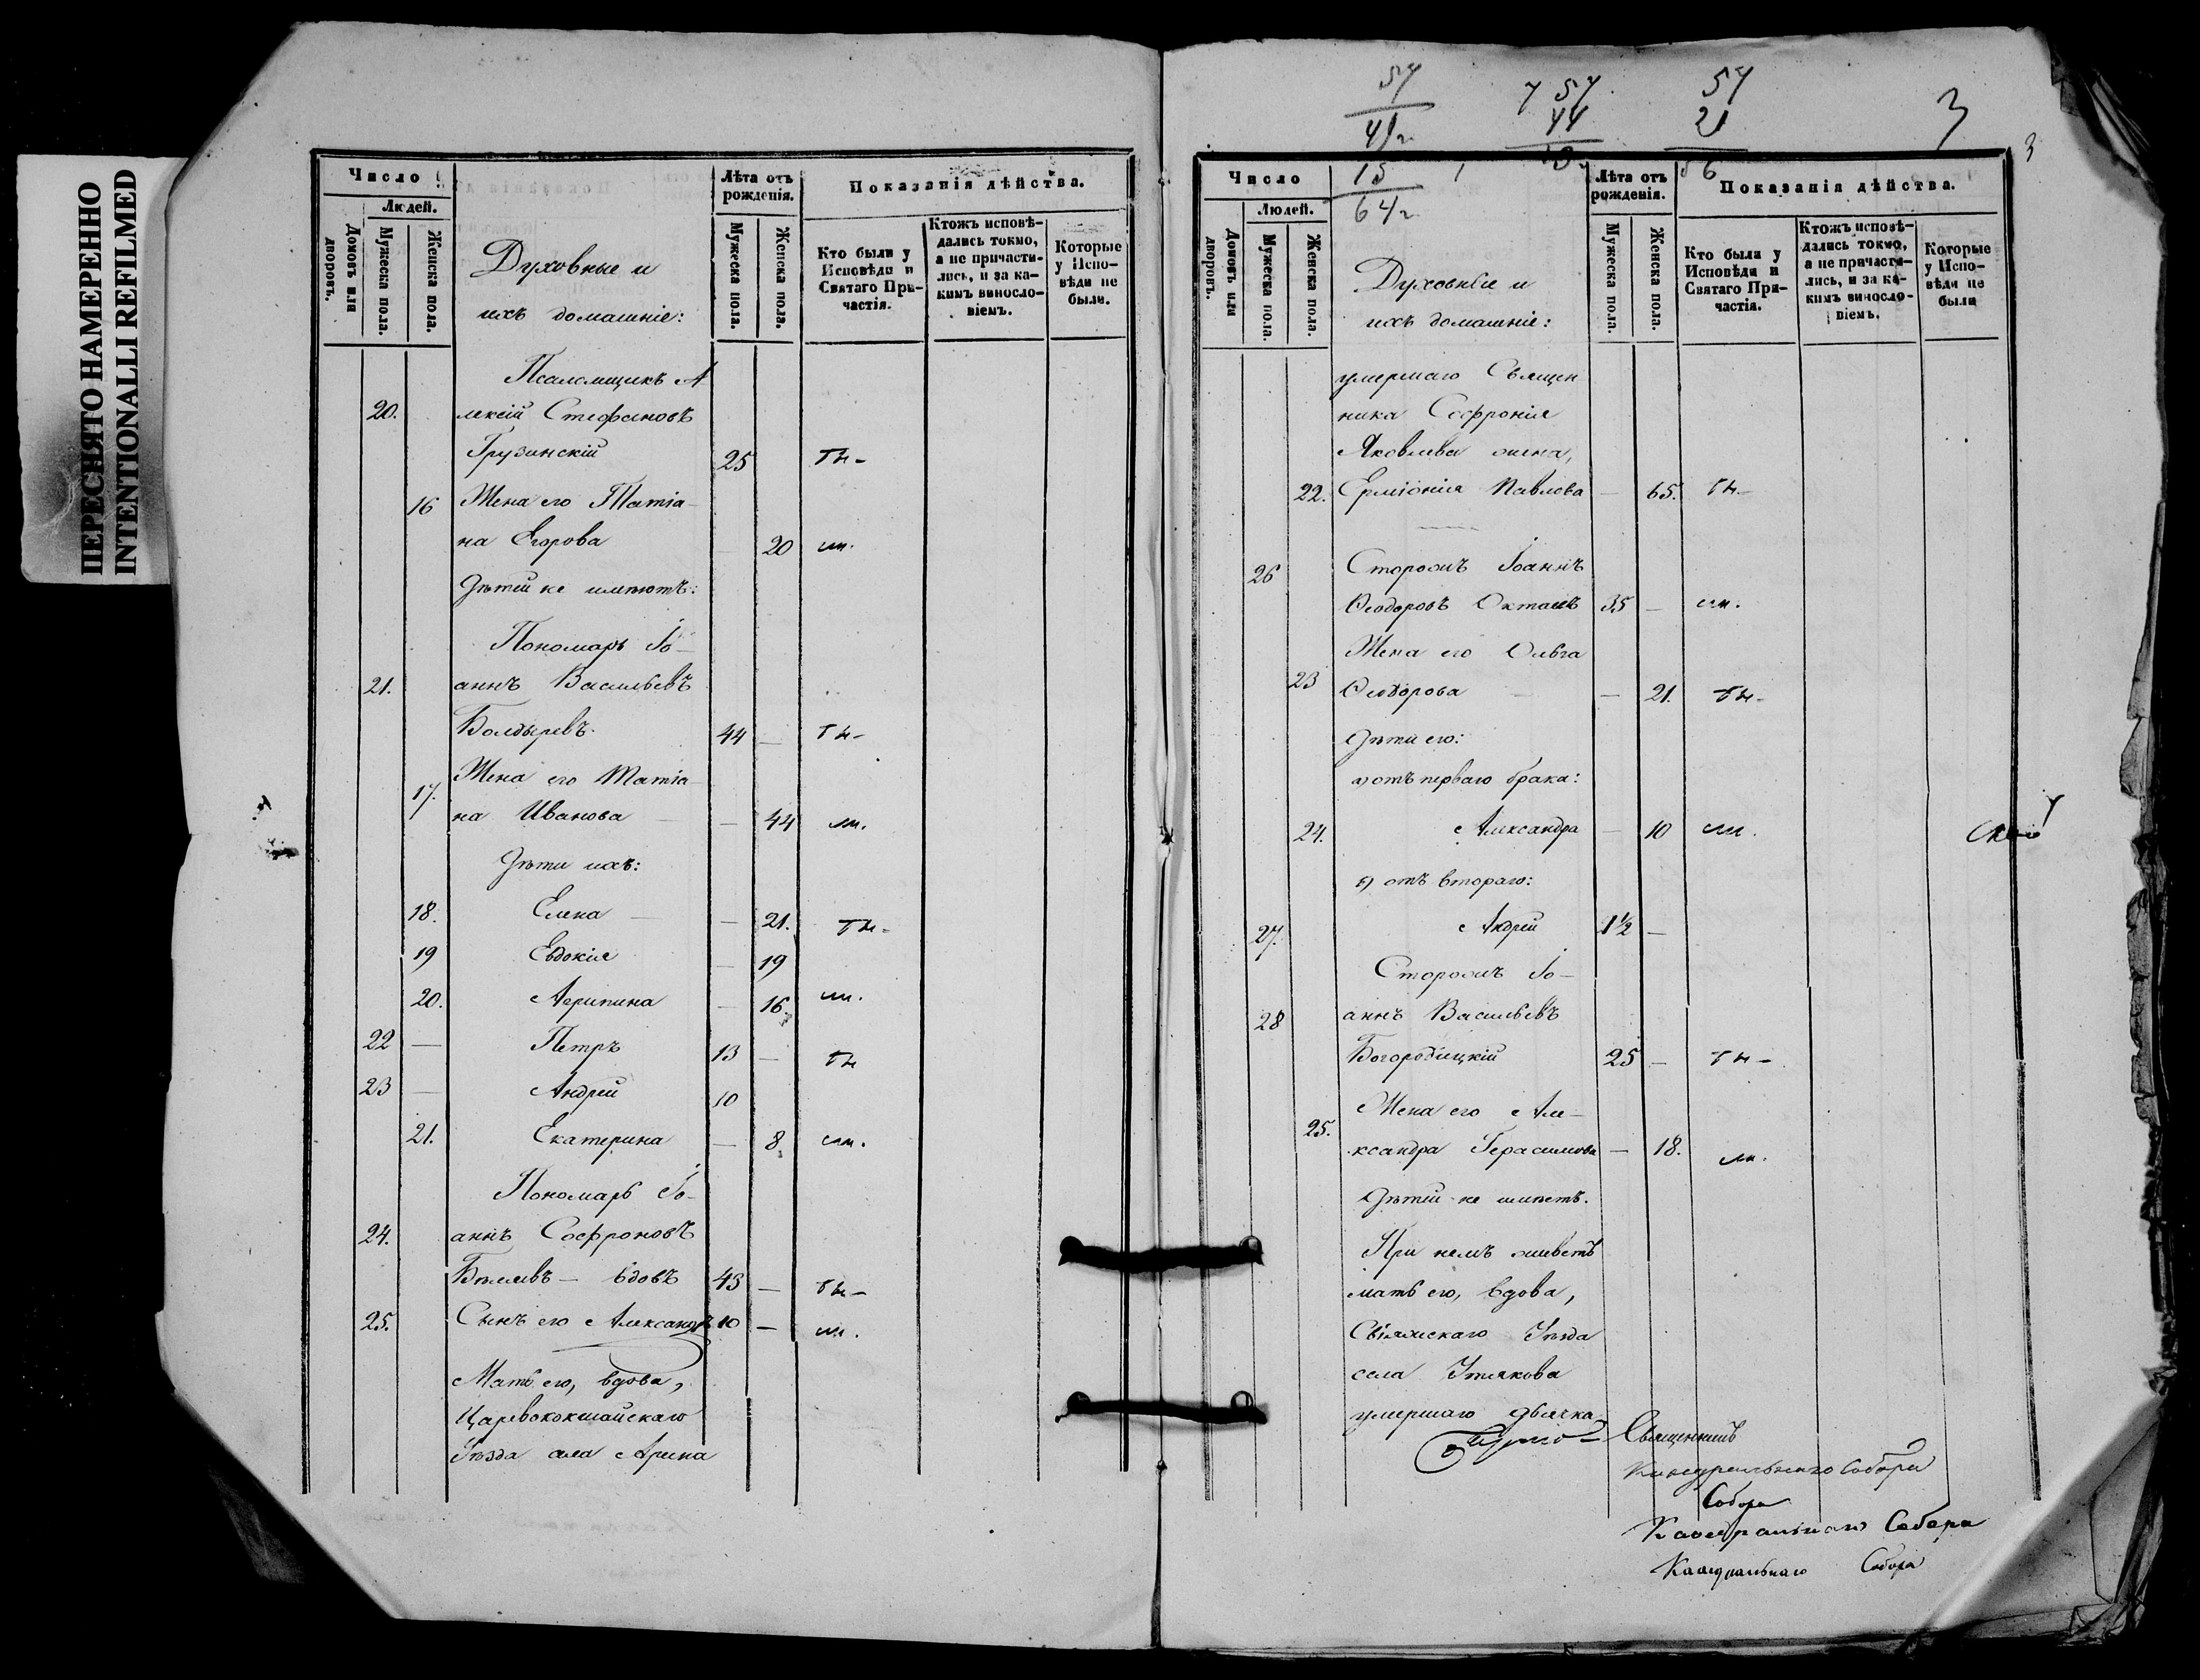 ПЕРЕСНЯТО НАМЕРЕННО
INTENTIONALLI REFILMED
Число
Лѣта отъ рожденія.
Показанія дѣйства.
Людей.
Домовъ или дворовъ.
Мужеска пола.
Женска пола.
Духовные и
ихъ домашніе:
Мужеска пола.
Женска пола.
Кто были у Исповѣди и Святаго При-
частія.
Ктожъ исповѣ-
дались токмо,
а не причасти-
лись, и за ка-
кимъ винословіемъ.
Которые
у Испо-
вѣди не
были.
Псаломщикъ А
20. лексій Стефановъ
Грузинскій 25
16 Жена его Татіа-
на Егорова 20
Дѣтей не имѣютъ:
Пономарь Іо-
21. аннъ Васильевъ
Болдыревъ. 44 —
17. Жена его Татіа-
на Иванова — 44
Дѣти ихъ:
18. Елена — 21.
19 Евдокія — 19
20. Агрипина — 16.
22 — Петръ 13 —
23 — Андрей 10
21. Екатерина — 8
Пономарь Іо-
24. аннъ Софроновъ
Бѣляевъ — вдовъ 43 —
25. Сынъ его Александръ 10 —
Мать его, вдова,
Царевококшайскаго
Уѣзда села Арина
57
41
15
64
7 57
44
57
21
56
3
3
Число
Лѣта отъ рожденія.
Показанія дѣйства.
Людей.
Домовъ или дворовъ.
Мужеска пола.
Женска пола.
Духовные и
ихъ домашніе:
Мужеска пола.
Женска пола.
Кто были у
Исповѣди и
Святаго При-
частія.
Ктожъ исповѣ-
дались токмо,
а не причасти-
лись, и за ка-
кимъ виносло-
віемъ.
Которые
у Испо-
вѣди не
были
умершаго Священ-
ника Софронія
Яковлева жена,
22. Ерміонія Павлова — 65.
26 Сторожъ Іоаннъ
Ѳеодоровъ Октаевъ 35 —
Жена его Ольга
23 Ѳеодорова — 21.
Дѣти его:
а) отъ перваго брака:
24. Александра — 10
б) отъ втораго:
27. Андрей 1½ —
Сторожъ Іо-
28 аннъ Васильевъ
Богородицкій 25 —
Жена его Але-
25. ксандра Герасимова — 18.
Дѣтей не имѣетъ.
При немъ живетъ
мать его, вдова,
Свіяжскаго Уѣзда
села Утякова
умершаго дьячка
Священникъ
Каѳедральнаго Собора
Собора
Каѳедральнаго Собора
Каѳедральнаго Собора